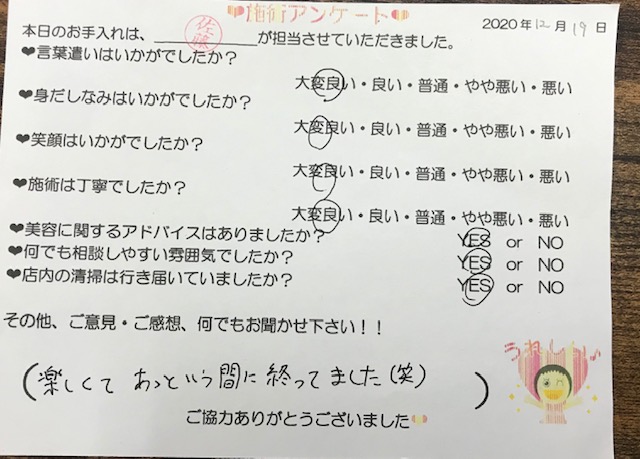 施術アンケート
2020年12月19日
本日のお手入れは、佐藤が担当させていただきました。
❤言葉遣いはいかがでしたか？
大変良い・良い・普通・やや悪い・悪い
❤身だしなみはいかがでしたか？
大変良い・良い・普通・やや悪い・悪い
❤笑顔はいかがでしたか？
大変良い・良い・普通・やや悪い・悪い
❤施術は丁寧でしたか？
大変良い・良い・普通・やや悪い・悪い
❤美容に関するアドバイスはありましたか？ YES or NO
❤何でも相談しやすい雰囲気でしたか？ YES or NO
❤店内の清掃は行き届いていましたか？ YES or NO
その他、ご意見・ご感想、何でもお聞かせ下さい！！
うれしい♪
(楽しくて あっという間に終ってました(笑) )
ご協力ありがとうございました